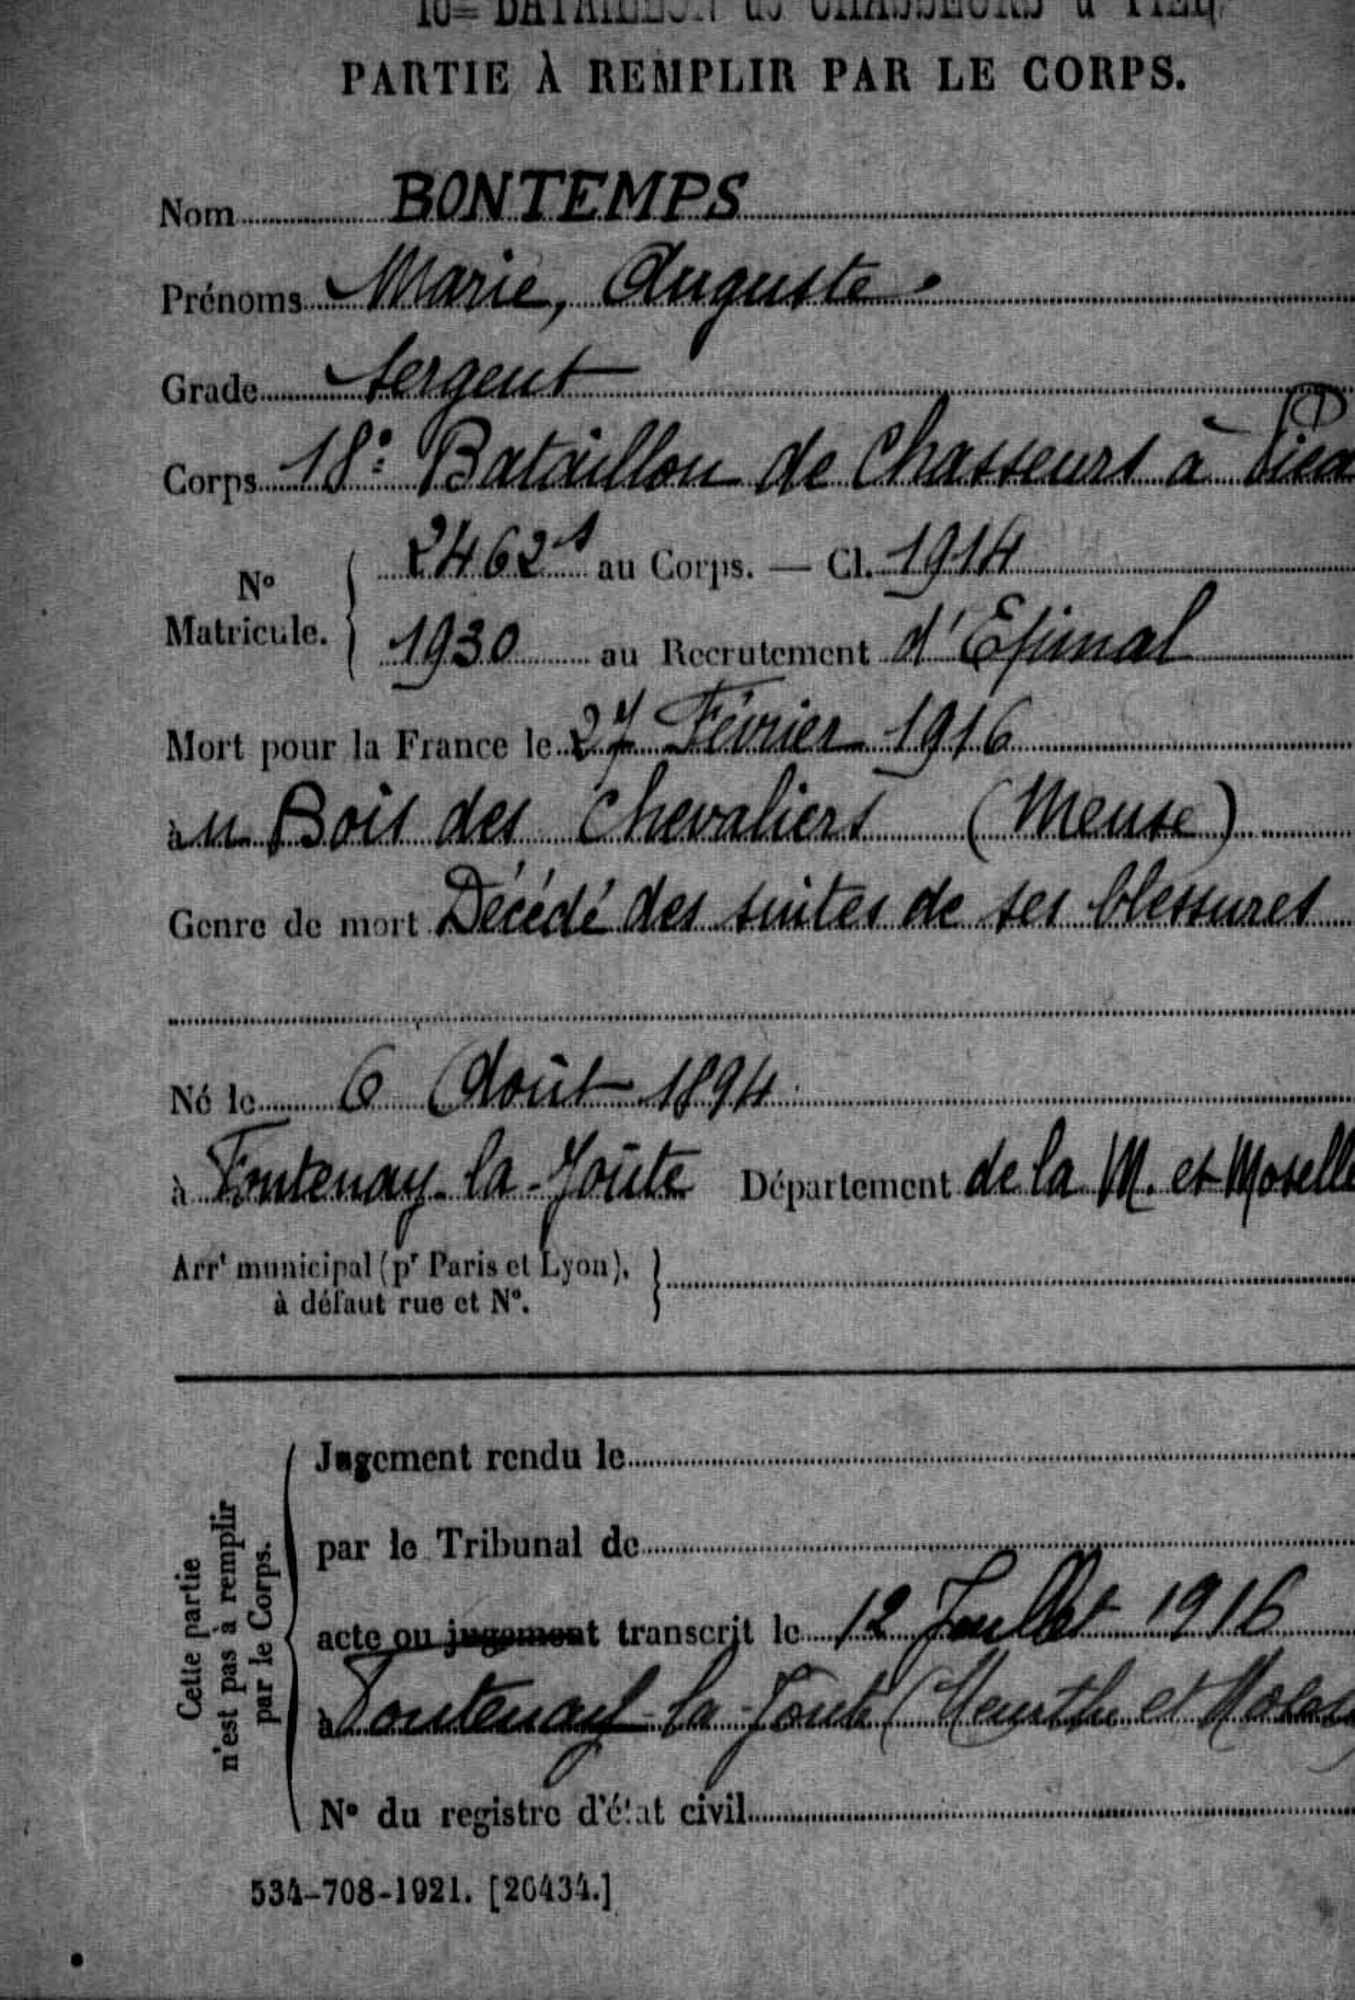 BATAILLON de CHASSEURS à PIED
PARTIE À REMPLIR PAR LE CORPS.
Nom BONTEMPS
Prénoms Marie, Auguste
Grade Sergent
Corps 18e Bataillon de Chasseurs à Pied
N° Matricule.
24621 au Corps. — Cl. 1914
1930 au Recrutement d'Epinal
Mort pour la France le 27 Février 1916
au Bois des Chevaliers (Meuse)
Genre de mort Décédé des suites de ses blessures
Né le 6 Août 1894
à Fontenay-la-Joûte Département de la M. et Moselle
Arrt municipal (pr Paris et Lyon),
à défaut rue et N°.
Cette partie
n'est pas à remplir
par le Corps.
Jugement rendu le
par le Tribunal de
acte ou jugement transcrit le 12 Juillet 1916
à Fontenay-la-Joute (Meurthe et Moselle
N° du registre d'état civil
534-708-1921. [20434.]